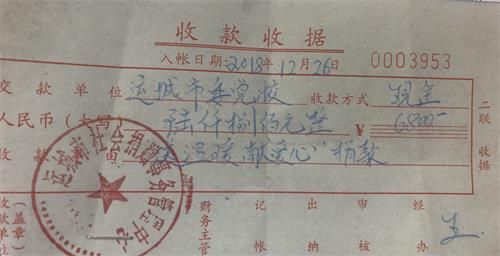 收款收据
入帐日期:2018年12月26日 0003953
交款单位 运城市委党校 收款方式 现金
人民币(大写) 陆仟捌佰元整 ¥ 6800-
收款事由 送温暖献爱心"捐款
二联 收据
运城市社会捐赠事务管理中心
(盖章) 收款单位
财务主管 记帐 出纳 审核 经办 王